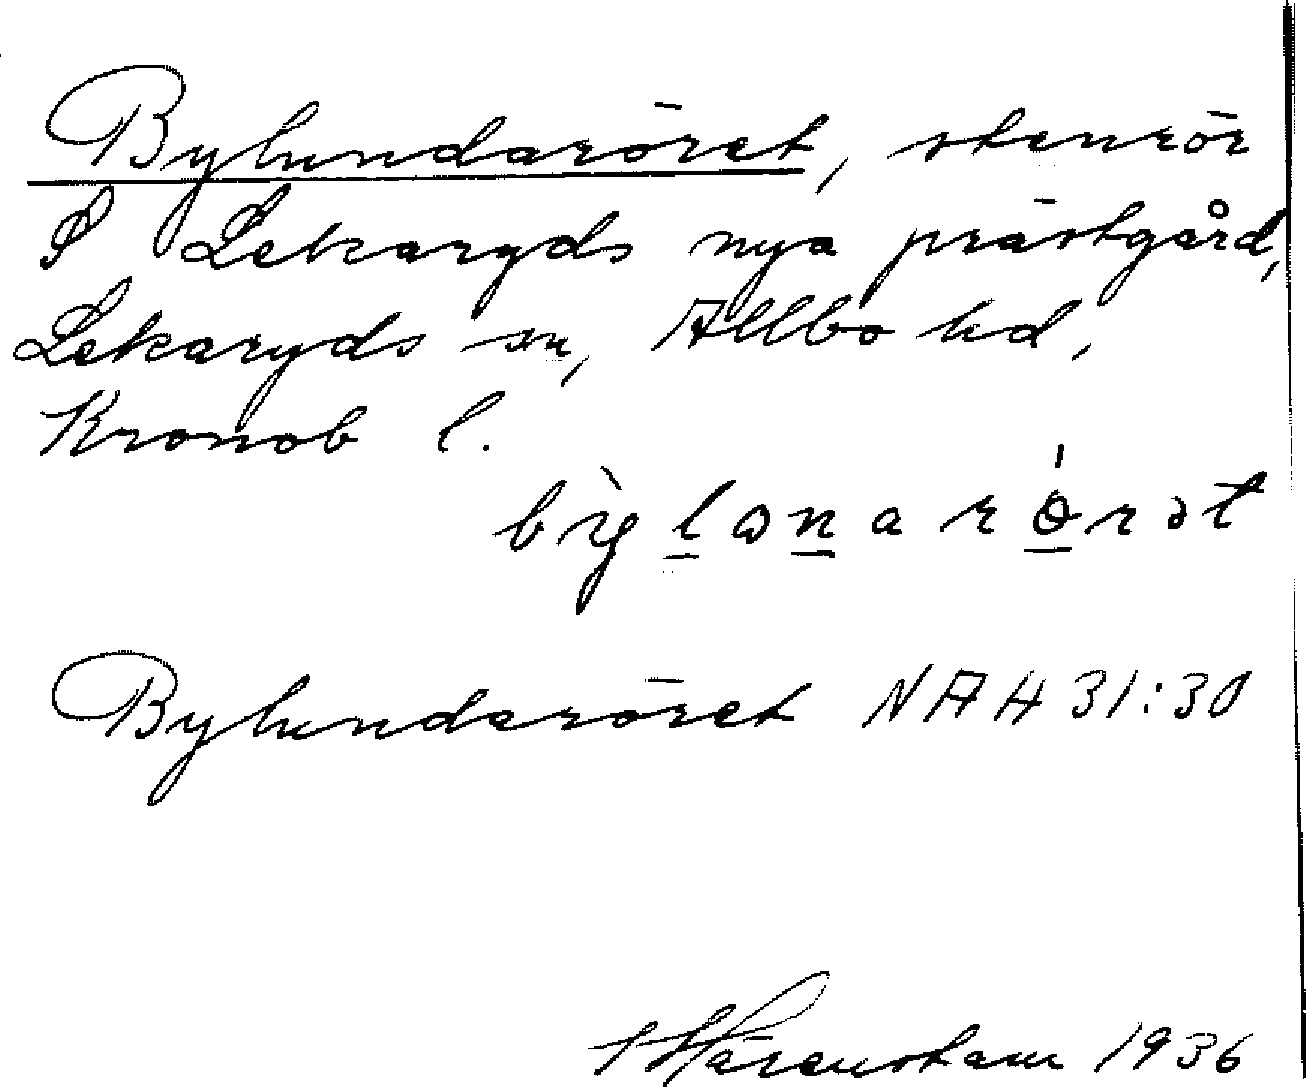 Bylundaröret, stenrör
S Lekaryds nya prästgård,
Lekaryds sn, Allbo hd,
Kronob l.
Bylundaröret NAH 31:30
1936